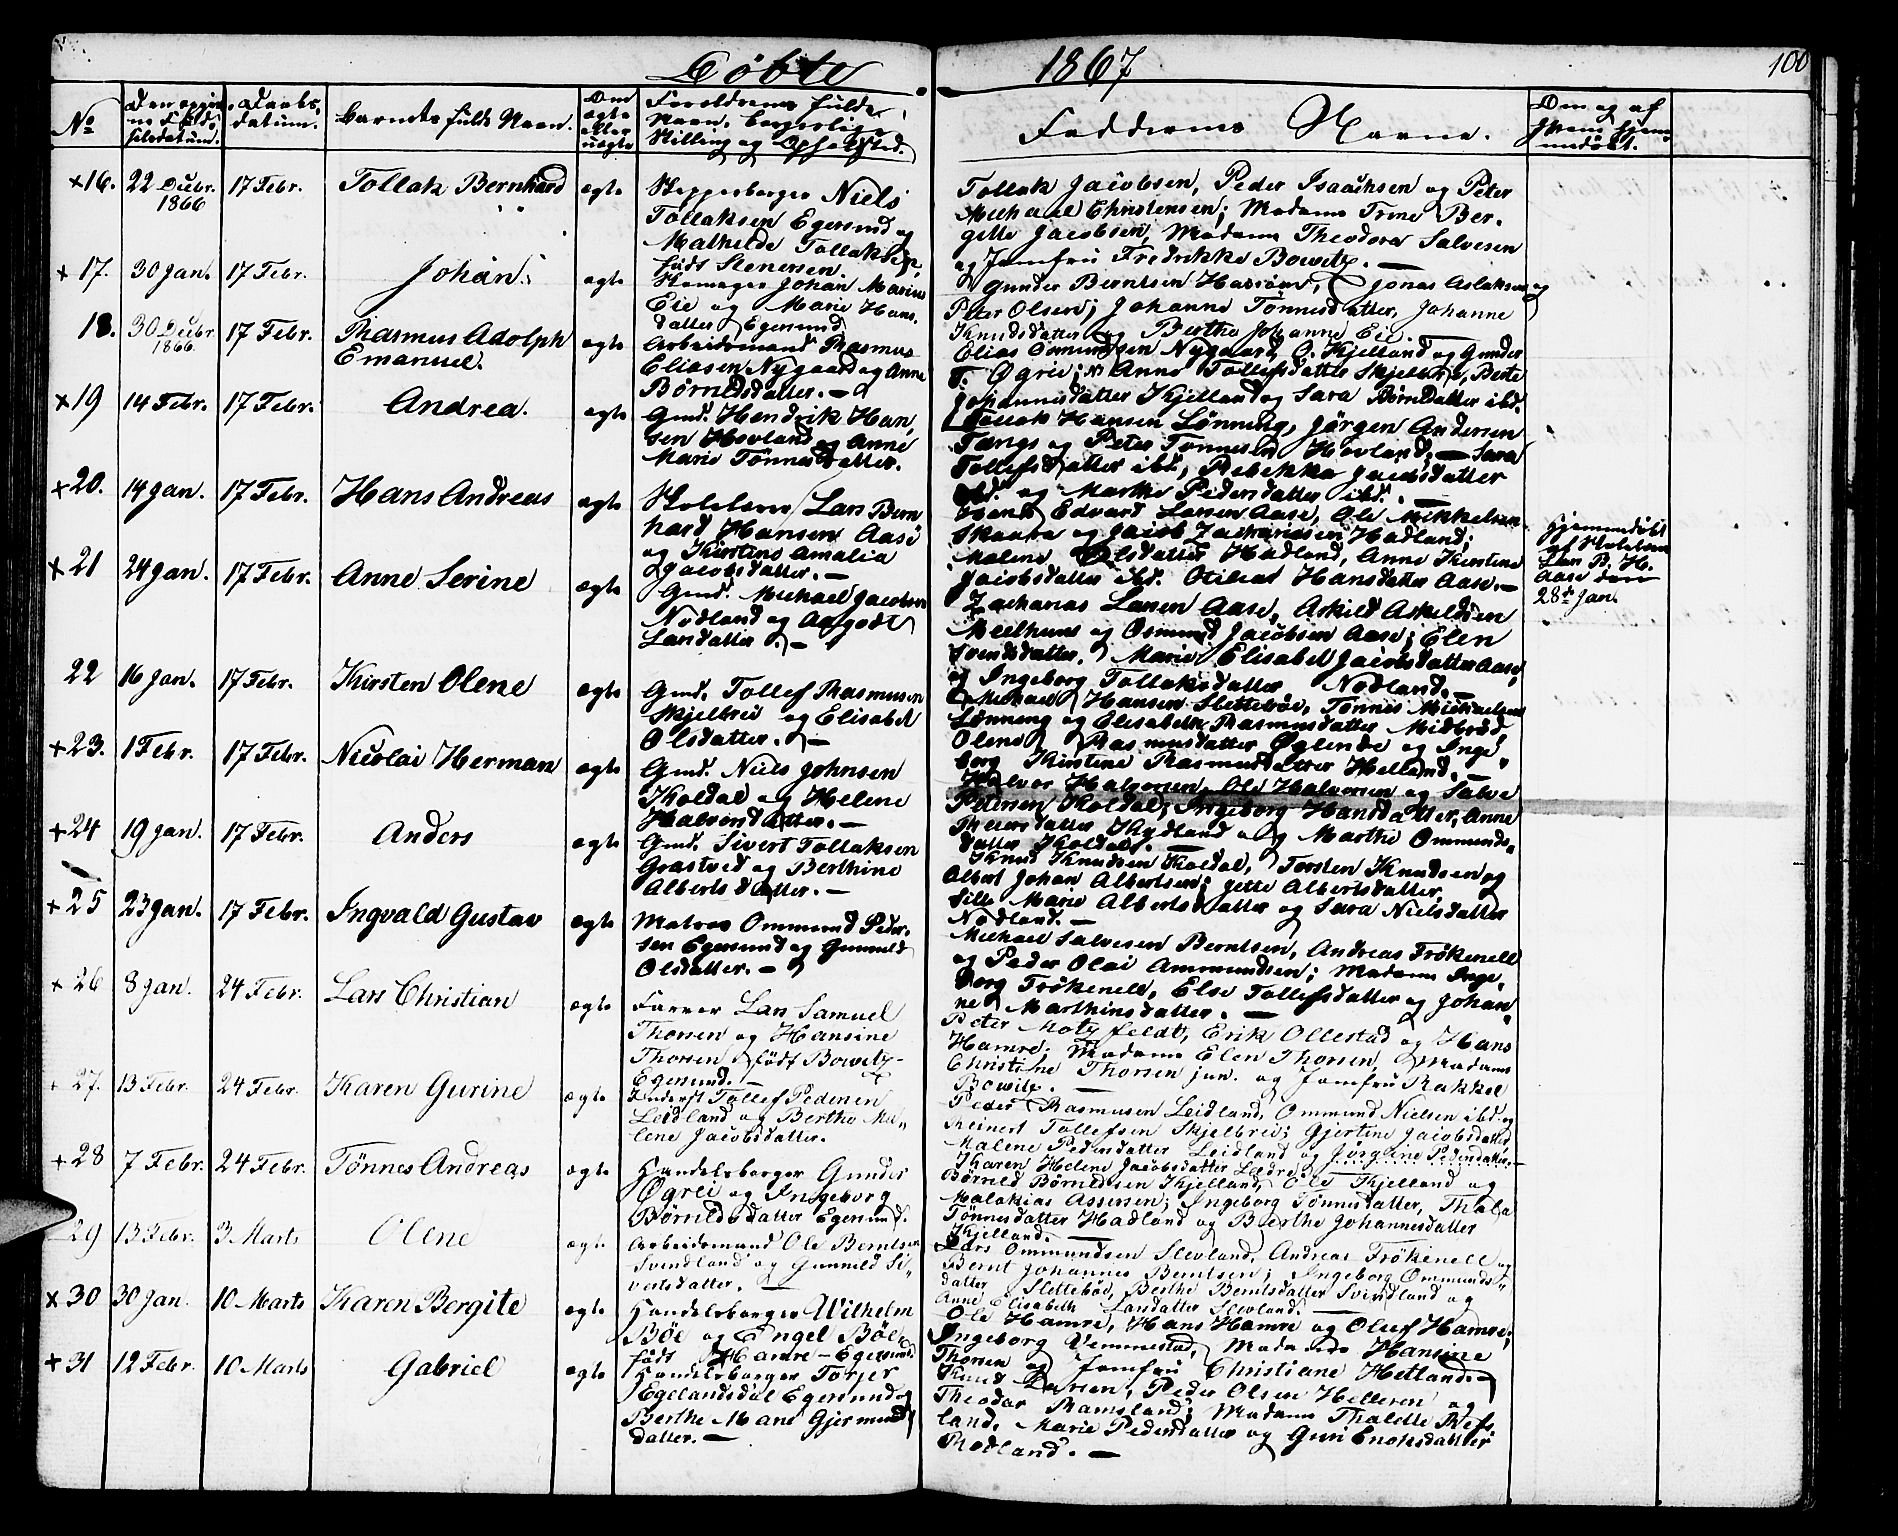 Döbte 1867 100
No
Den opgivne Fødselsdatum.
Daabsdatum.
Barnets fulde Navn.
Om ægte eller uægte
Forældrenes fulde Navn, borgerlige Stilling og Opholdsted.
Faddernes Navne.
Om og af hvem hjemmedöbt.
+16. 22 Decbr. 1866 17 Febr. Tollak Bernhard ægte
Skipperborger Niels
Tollaksen Egersund og
Mathilde Tollaksen,
födt Stenersen.
Tollak Jacobsen, Peder Isaachsen og Peter
Michael Christensen; Madame Trine Ber-
gitte Jacobsen, Madame Theodora Salvesen
og Jomfru Fredrikke Bowitz. —
+17. 30 Jan. 17 Febr. Johan. ægte
Skomager Johan Marius
Eie og Marie Hans-
datter Egersund
Gunder Berntsen Havsöen, Jonas Aslaksen og
Peter Olsen; Johanne Tönnesdatter, Johanne
Knudsdatter og Berthe Johanne Eie. —
18. 30 Decbr. 1866. 17 Febr. Rasmus Adolph Emanuel. ægte
Arbeidsmand Rasmus
Eliasen Nygaard og Anne
Börildsdatter. —
Elias Osmundsen Nygaard, O. Kjelland og Gunder
T. Ögrei; Anne Tollefsdatter Skjelbrei, Berte
Johannesdatter Kjelland og Sara Börildsdatter ibd.
+19 14 Febr. 17 Febr. Andrea. ægte
Gmd. Hendrik Han-
sen Hovland og Anne
Marie Tönnesdatter.
Tollak Hansen Lönning, Jörgen Andersen
Tængs og Peter Tönnesen Hovland; — Sara
Tollefsdatter ibd., Rebekka Jacobsdatter
ibd. og Marthe Pedersdatter ibd. —
+20. 14 Jan. 17 Febr. Hans Andreas ægte
Skolelærer Lars Bern
hard Hansen Aase
og Kirstine Amalia
Jacobsdatter. —
Hans Edvard Larsen Aase, Ole Mikkelsen
Skaara og Jacob Zachariasen Hadland;
Malene Olsdatter Hadland, Anne Kirstine
Jacobsdatter ibd. Otilia Hansdatter Aase. —
Hjemmedöbt
af Skolelærer
Lars B. H.
Aase den
28de Jan.
+21 24 Jan. 17 Febr. Anne Serine ægte
Gmd. Michael Jacobsen
Nodland og Aagodt
Larsdatter. —
Zacharias Larsen Aase, Askild Askildsen
Mælhuus og Osmund Jacobsen Aase; Elen
Svendsdatter, Marie Elisabet Jacobsdatter Aase,
og Ingeborg Tollaksdatter Nodland. —
22 16 Jan. 17 Febr. Kirsten Olene ægte
Gmd. Tollef Rasmusen
Skjelbrei og Elisabet
Olsdatter. —
Michael Hansen Slettebøe, Tönnes Michaelsen
Lönning og Elisabeth Rasmusdatter Midbröd
Olene Rasmusdatter Øglende og Inge-
borg Kirstine Rasmusdatter Helland. —
+23. 1 Febr. 17 Febr. Nicolai Herman ægte
Gmd. Niels Johnsen
Koldal og Helene
Halvorsdatter. —
Halvor Halvorsen, Ole Halvorsen og Salve
Petersen Koldal; Ingeborg Hansdatter, Anne
Peersdatter Kydland og Marthe Ommunds-
datter Koldal. —
+24 19 Jan. 17 Febr. Anders ægte
Gmd. Sivert Tollaksen
Grastveid og Berthine
Albertsdatter. —
Knud Knudsen Koldal, Torsten Knudsen og
Albert Johan Albertsen; Jette Albertsdatter,
Sille Marie Albertsdatter og Sara Nielsdatter
Nodland. —
+25 23 Jan. 17 Febr. Ingvald Gustav ægte
Matros Ommund Peder-
sen Egersund og Gunnild
Olsdatter. —
Michael Salvesen Berntsen, Andreas Frökenell
og Peder Olai Ammundsen; Madame Inge-
borg Frökenell, Else Tollefsdatter og Johan-
ne Marthinsdatter. —
+26 8 Jan. 24 Febr. Lars Christian ægte
Farver Lars Samuel
Thorsen og Hansine
Thorsen födt Bowitz -
Egersund. —
Peter Motzfeldt, Erik Ollestad og Hans
Hamre; Madame Elen Thorsen, Madame
Christine Thorsen jun. og Jomfru Rakkel
Bowitz. —
+27. 13 Febr. 24 Febr. Karen Gurine ægte
Inderst Tollef Pedersen
Leidland og Berthe Ma-
lene Jacobsdatter.
Peder Rasmusen Leidland, Ommund Nielsen ibd. og
Reinert Tollefsen Skjelbrei; Gjertine Jacobsdatter
Malene Pedersdatter Leidland og Jörgine Pedersdatter. —
+28 7 Febr. 24 Febr. Tönnes Andreas ægte
Handelsborger Gunder
Ögrei og Ingeborg
Börildsdatter Egersund.
Karen Helene Jacobsdatter Lædre.
Börild Börildsen Kjelland, Ole Kjelland og
Malakias Assersen; Ingeborg Tönnesdatter, Thala
Tönnesdatter Hadland og Berthe Johannesdatter
Kjelland. —
29 13 Febr. 3 Marts Olene ægte
Arbeidsmand Ole Berntsen
Svindland og Gunnild Si-
vertsdatter. —
Lars Ommundsen Slevland, Andreas Frökenell og
Bernt Johannes Berntsen; Ingeborg Ommunds-
datter Slettebød, Berthe Berntsdatter Svindland og
Anne Elisabeth Larsdatter Slevland. —
+30 30 Jan. 10 Marts Karen Bergite ægte
Handelsborger Wilhelm
Böe og Engel Böe,
födt Hamre - Egersund.
Ole Hamre, Hans Hamre og Oluf Hamre;
Ingeborg Vemmestad, Madame Hansine
Thorsen og Jomfru Christiane Hetland. —
+31 12 Febr. 10 Marts Gabriel ægte
Handelsborger Torjer
Egelandsdal Egersund og
Berthe Marie Gjermunds
datter. —
Knud Larsen, Peder Olsen Helleren og
Theodor Ramsland; Madame Thalette Refs-
land, Marie Pedersdatter og Guri Enoksdatter
Rodland. —